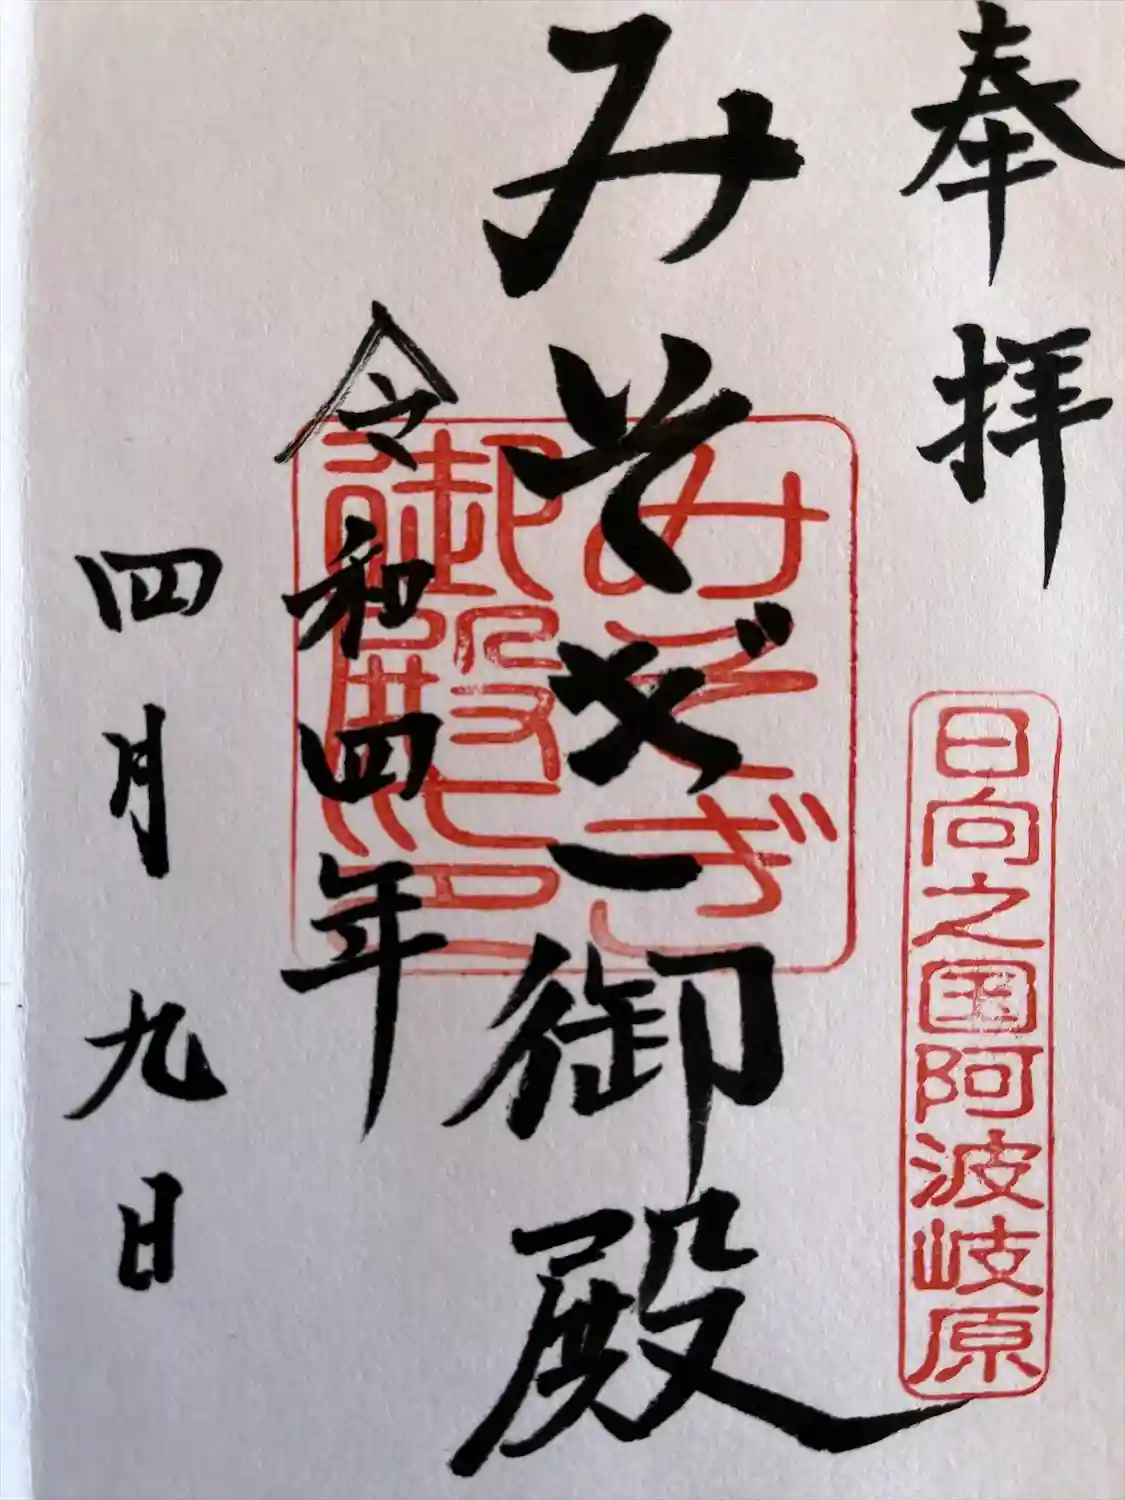 奉拝
日向之国阿波岐原
みそぎ御殿
みそぎ御殿印
令和四年
四月九日